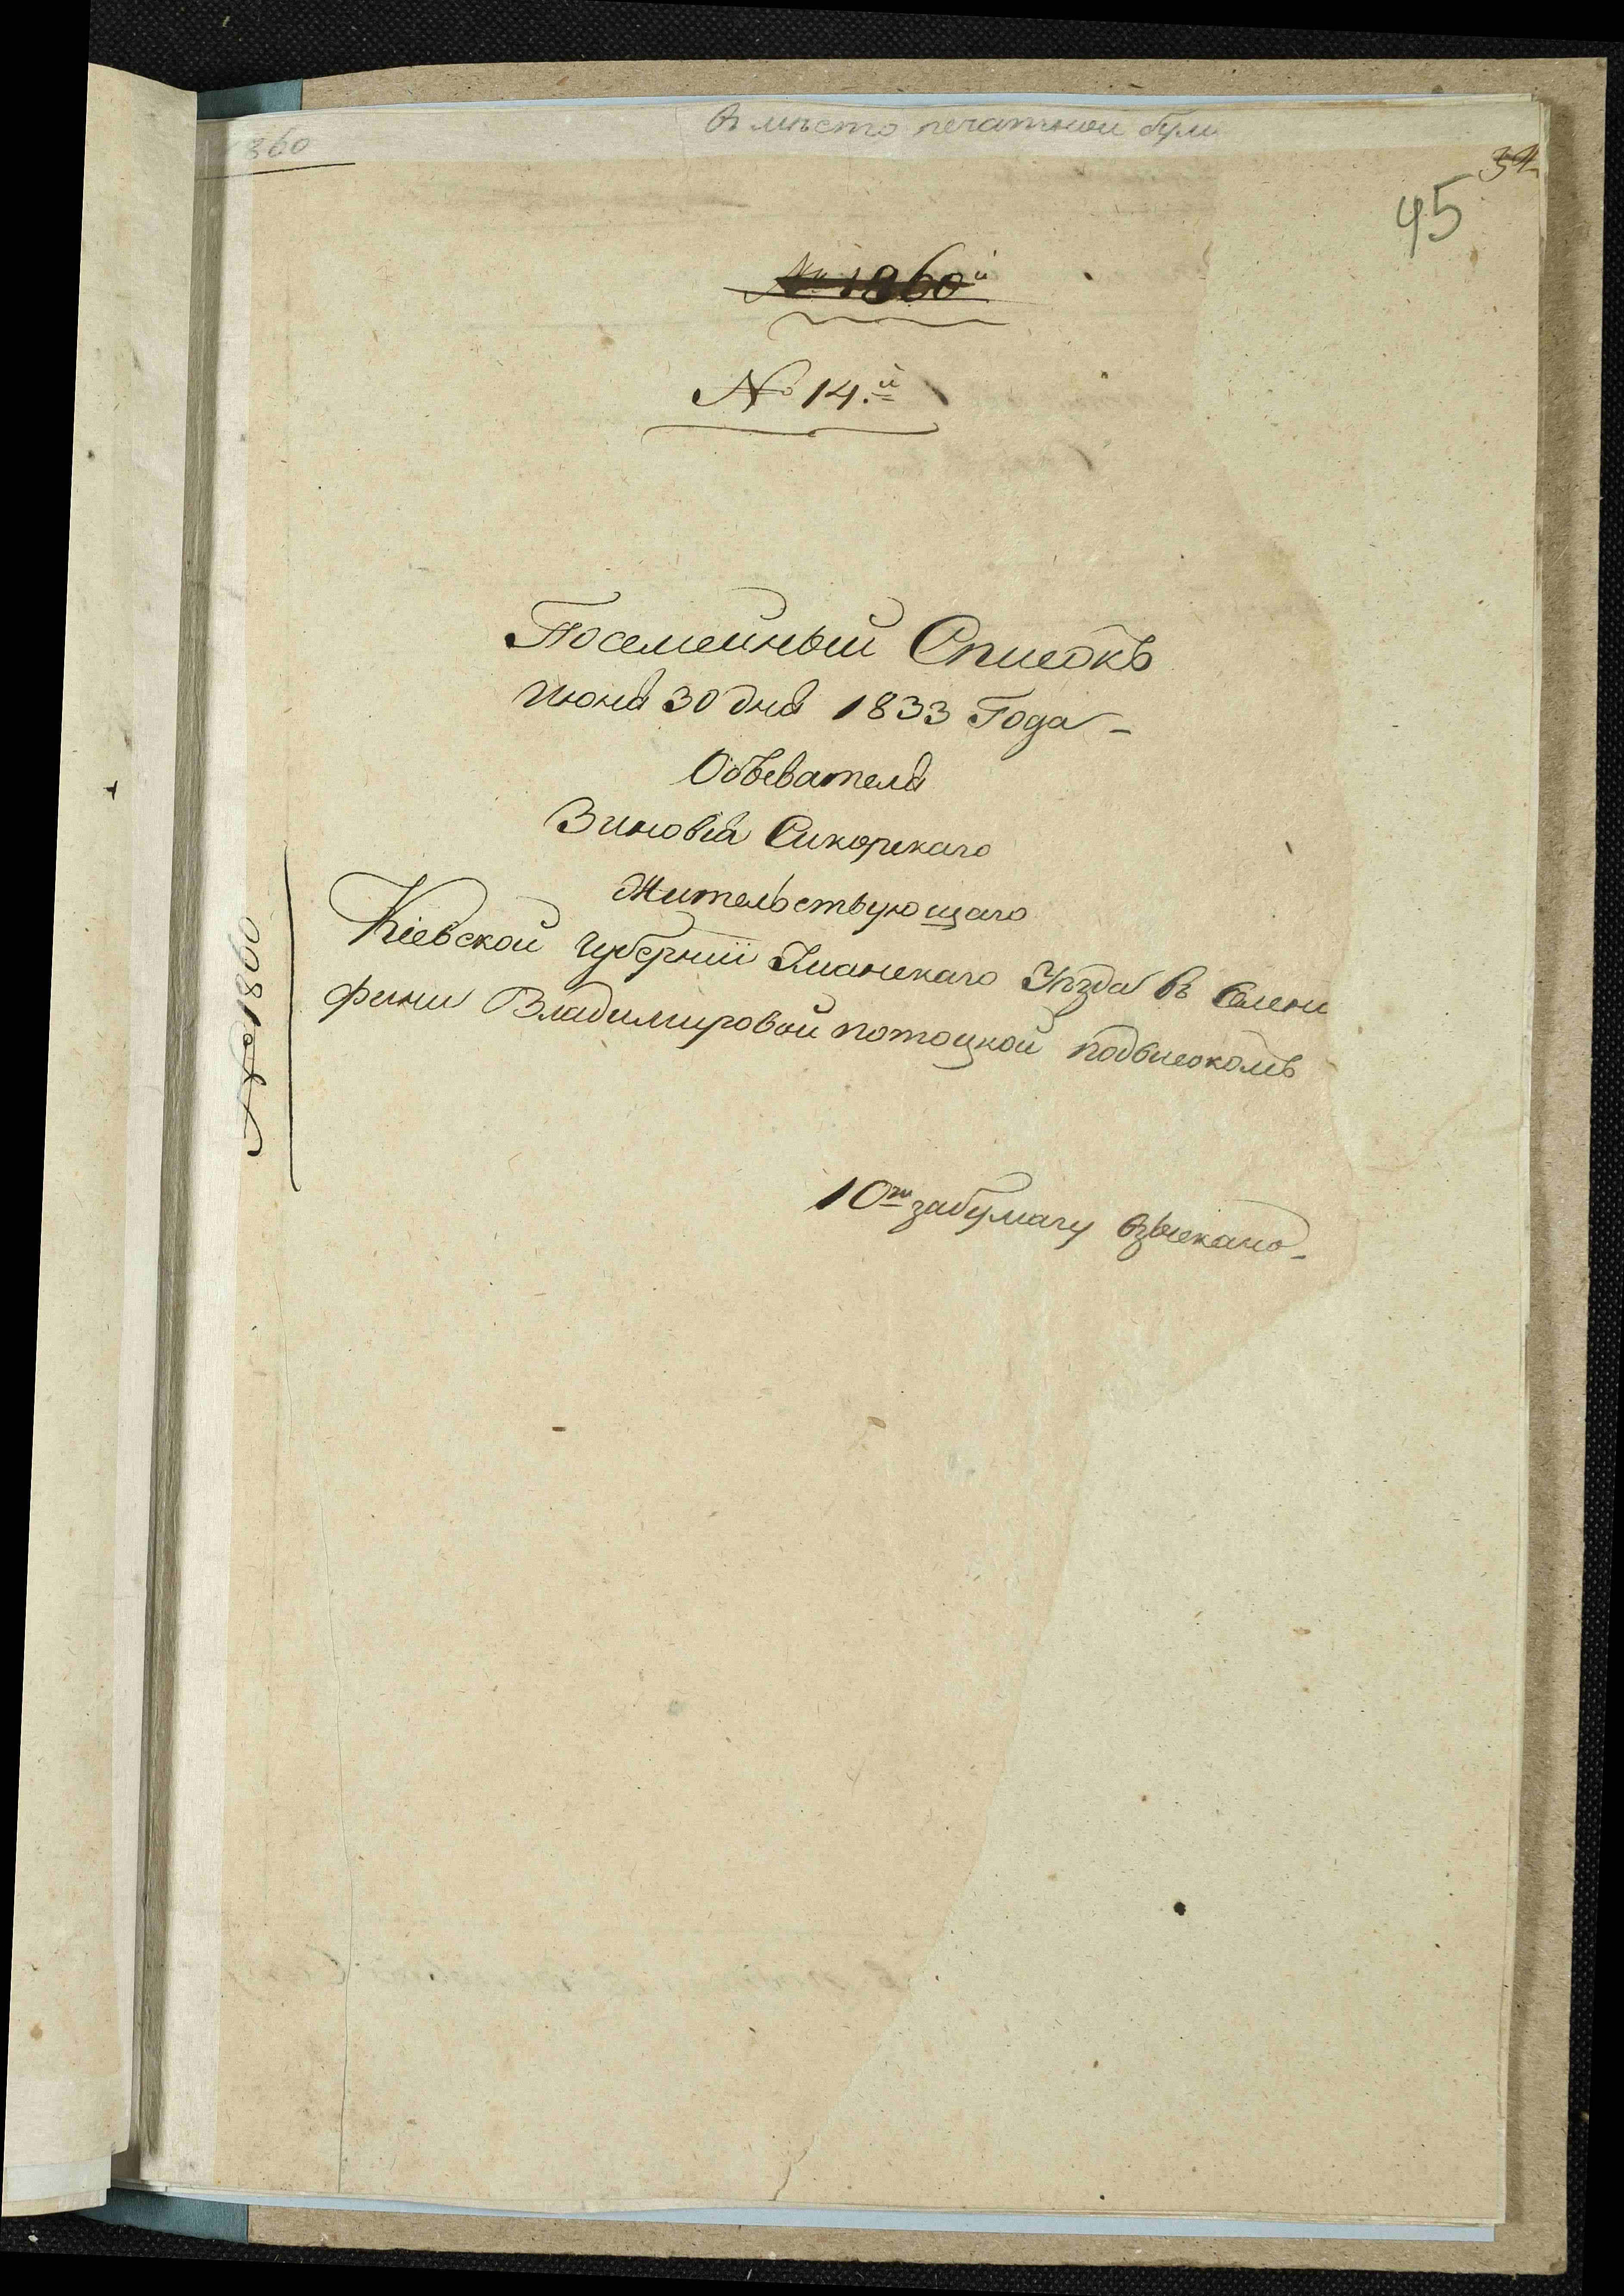 1860
въ мѣсто печатной бума
34
45
№ 1860й
№ 14.й
Посемейный Списокъ
Июня 30 дня 1833 Года –
Объвателя
Зиновіа Сикорскаго
Жительствующаго
Кіевской Губерніи Уманскаго Уѣзда въ Селени
фини Владимировой потоцкой подвысокомъ
10ть за бумагу взыскано –
№ 1860